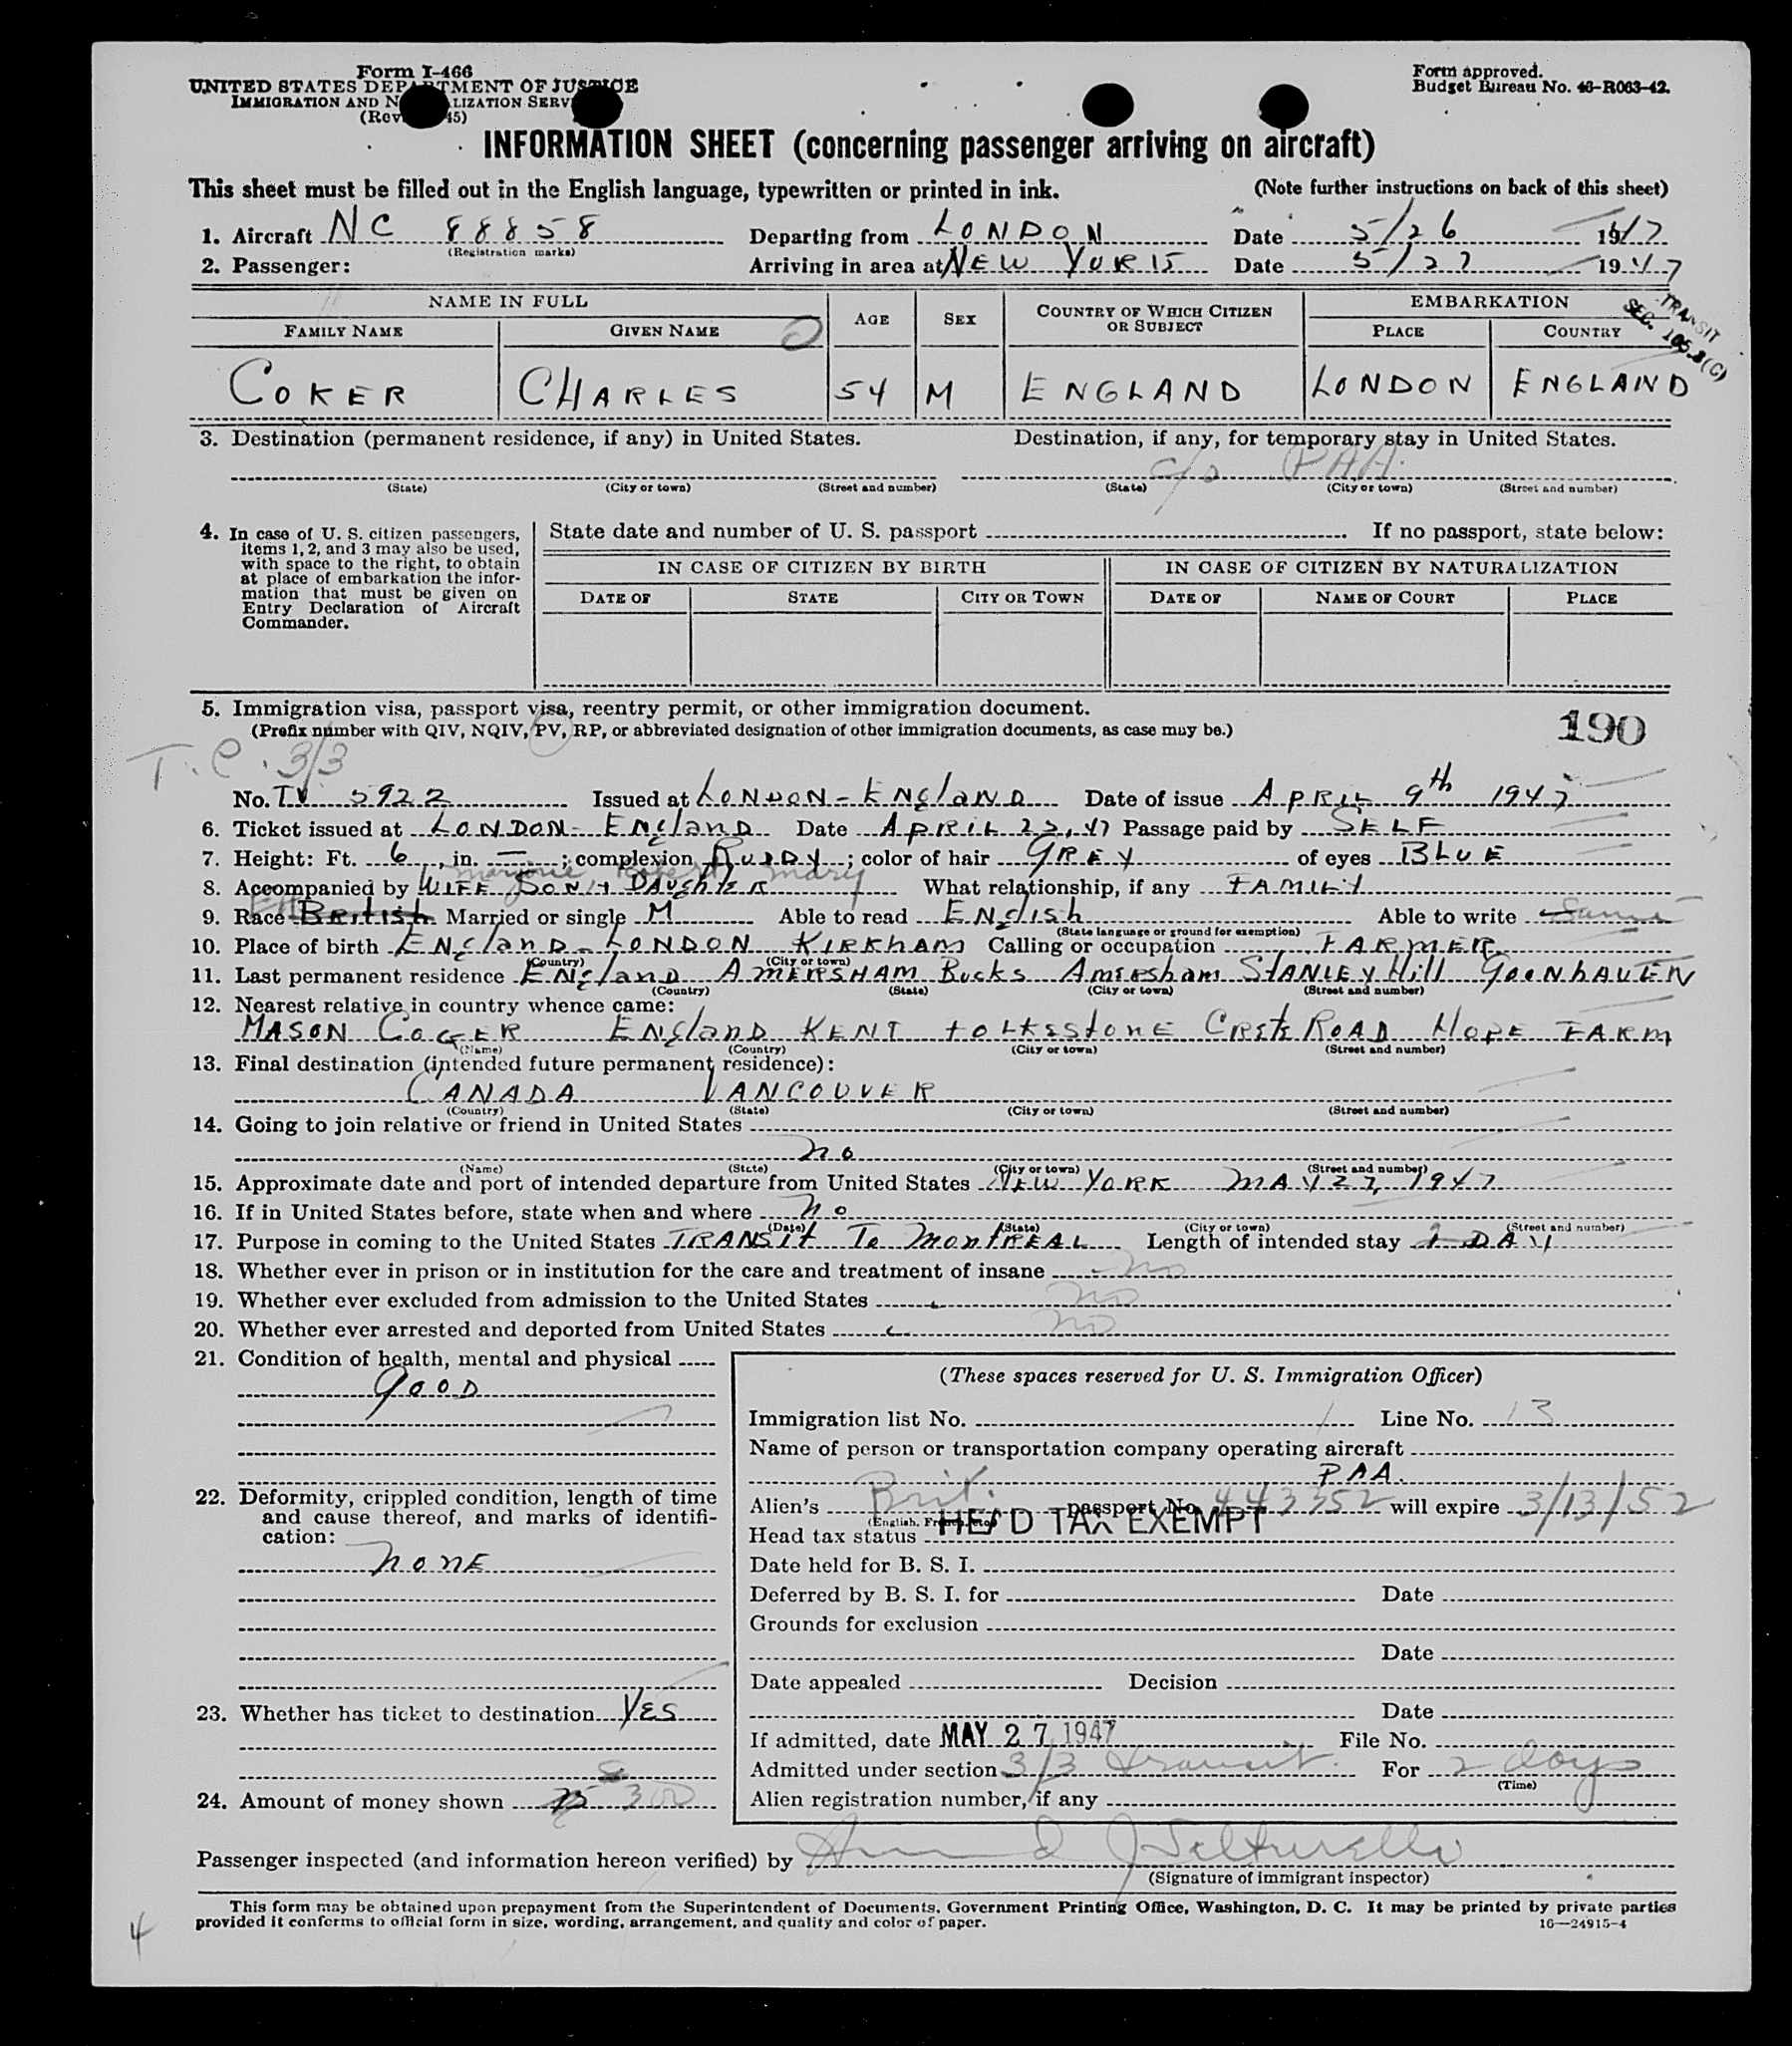 Form I-466
UNITED STATES DEPARTMENT OF JUSTICE
IMMIGRATION AND NATURALIZATION SERVICE
(Rev. 45)
Form approved.
Budget Bureau No. 43-R063-42.
INFORMATION SHEET (concerning passenger arriving on aircraft)
This sheet must be filled out in the English language, typewritten or printed in ink. (Note further instructions on back of this sheet)
1. Aircraft NC 88858 Departing from LONDON Date 5/26 1947
(Registration marks)
2. Passenger: Arriving in area at NEW YORK Date 5/27 1947
TRANSIT
SEC. 105.3(C)
NAME IN FULL AGE SEX COUNTRY OF WHICH CITIZEN OR SUBJECT EMBARKATION
FAMILY NAME GIVEN NAME PLACE COUNTRY
COKER CHARLES 54 M ENGLAND LONDON ENGLAND
3. Destination (permanent residence, if any) in United States. Destination, if any, for temporary stay in United States.
c/o PAA.
(State) (City or town) (Street and number) (State) (City or town) (Street and number)
4. In case of U. S. citizen passengers,
items 1, 2, and 3 may also be used,
with space to the right, to obtain
at place of embarkation the infor-
mation that must be given on
Entry Declaration of Aircraft
Commander.
State date and number of U. S. passport If no passport, state below:
IN CASE OF CITIZEN BY BIRTH IN CASE OF CITIZEN BY NATURALIZATION
DATE OF STATE CITY OR TOWN DATE OF NAME OF COURT PLACE
5. Immigration visa, passport visa, reentry permit, or other immigration document.
(Prefix number with QIV, NQIV, PV, RP, or abbreviated designation of other immigration documents, as case may be.)
190
T.C. 3/3
No. TV 5922 Issued at LONDON - ENGLAND Date of issue APRIL 9th 1947
6. Ticket issued at LONDON - ENGLAND Date APRIL 22, 47 Passage paid by SELF
7. Height: Ft. 6, in. —; complexion RUDDY; color of hair GREY of eyes BLUE
Marjorie Robert Mary
8. Accompanied by WIFE SON + DAUGHTER What relationship, if any FAMILY
9. Race British Married or single M Able to read ENGLISH Able to write Same
(State language or ground for exemption)
10. Place of birth ENGLAND - LONDON KIRKHAM Calling or occupation FARMER
(Country) (City or town)
11. Last permanent residence ENGLAND AMERSHAM BUCKS AMERSHAM STANLEY HILL
(Country) (State) (City or town) (Street and number)
12. Nearest relative in country whence came:
MASON COGER ENGLAND KENT FOLKESTONE ROAD HOPE FARM
(Name) (Country) (City or town) (Street and number)
13. Final destination (intended future permanent residence):
CANADA VANCOUVER
(Country) (State) (City or town) (Street and number)
14. Going to join relative or friend in United States
NO
(Name) (State) (City or town) (Street and number)
15. Approximate date and port of intended departure from United States NEW YORK MAY 27, 1947
16. If in United States before, state when and where NO
(Date) (State) (City or town) (Street and number)
17. Purpose in coming to the United States TRANSIT TO MONTREAL Length of intended stay 1 DAY
18. Whether ever in prison or in institution for the care and treatment of insane no
19. Whether ever excluded from admission to the United States no
20. Whether ever arrested and deported from United States no
21. Condition of health, mental and physical
GOOD
22. Deformity, crippled condition, length of time
and cause thereof, and marks of identifi-
cation:
NONE
23. Whether has ticket to destination YES
24. Amount of money shown 300
(These spaces reserved for U. S. Immigration Officer)
Immigration list No. 1 Line No. 13
Name of person or transportation company operating aircraft
PAA.
Alien's Brit. passport No. 443352 will expire 3/13/52
(English, French, etc.)
Head tax status HEAD TAX EXEMPT
Date held for B. S. I.
Deferred by B. S. I. for Date
Grounds for exclusion
Date
Date appealed Decision
Date
If admitted, date MAY 27 1947 File No.
Admitted under section 3/3 transit. For 2 days
(Time)
Alien registration number, if any
Passenger inspected (and information hereon verified) by
(Signature of immigrant inspector)
This form may be obtained upon prepayment from the Superintendent of Documents, Government Printing Office, Washington, D. C. It may be printed by private parties
provided it conforms to official form in size, wording, arrangement, and quality and color of paper. 16—24915-4
4